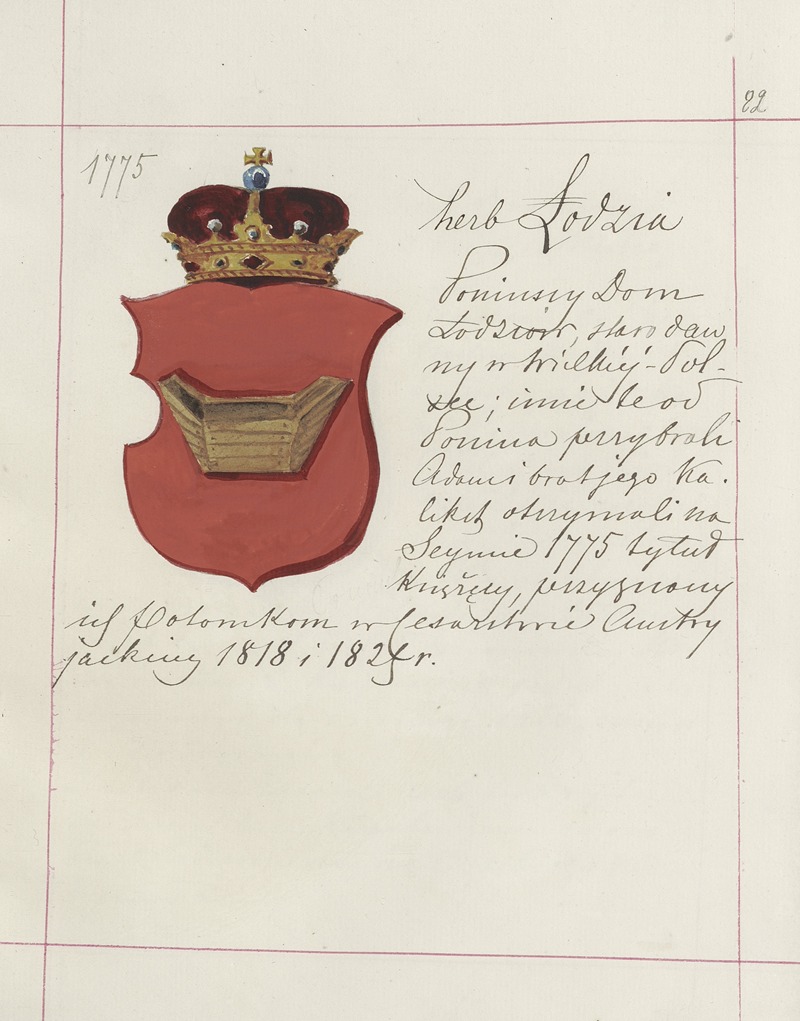 22
1775
herb Łodzia
Poninscy Dom
Łodziów, staro daw
ny w Wielkiéj-Pol-
sce; imie te od
Ponina przybrali
Adam i brat jego Ka.
likst otrzymali na
Seymie 1775 tytuł
Książęcy, przyznany
ich potomkom w Cesarstwie Austry
jackiey 1818 i 182 r.